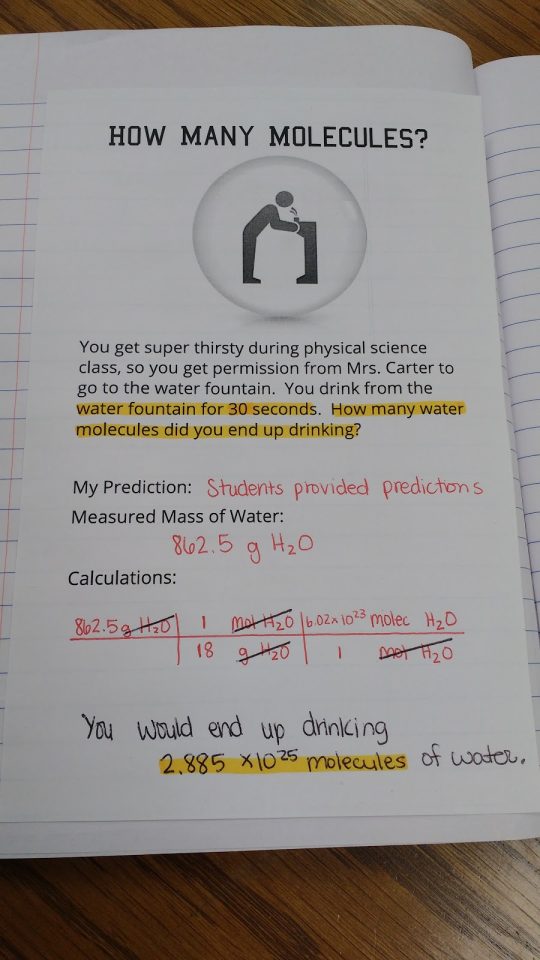 HOW MANY MOLECULES?
You get super thirsty during physical science
class, so you get permission from Mrs. Carter to
go to the water fountain. You drink from the
water fountain for 30 seconds. How many water
molecules did you end up drinking?
My Prediction: Students provided predictions
Measured Mass of Water:
862.5 g H₂O
Calculations:
862.5 g H₂O | 1 mol H₂O | 6.02x10²³ molec H₂O
18 g H₂O | 1 mol H₂O
You would end up drinking
2.885 x10²⁵ molecules of water.